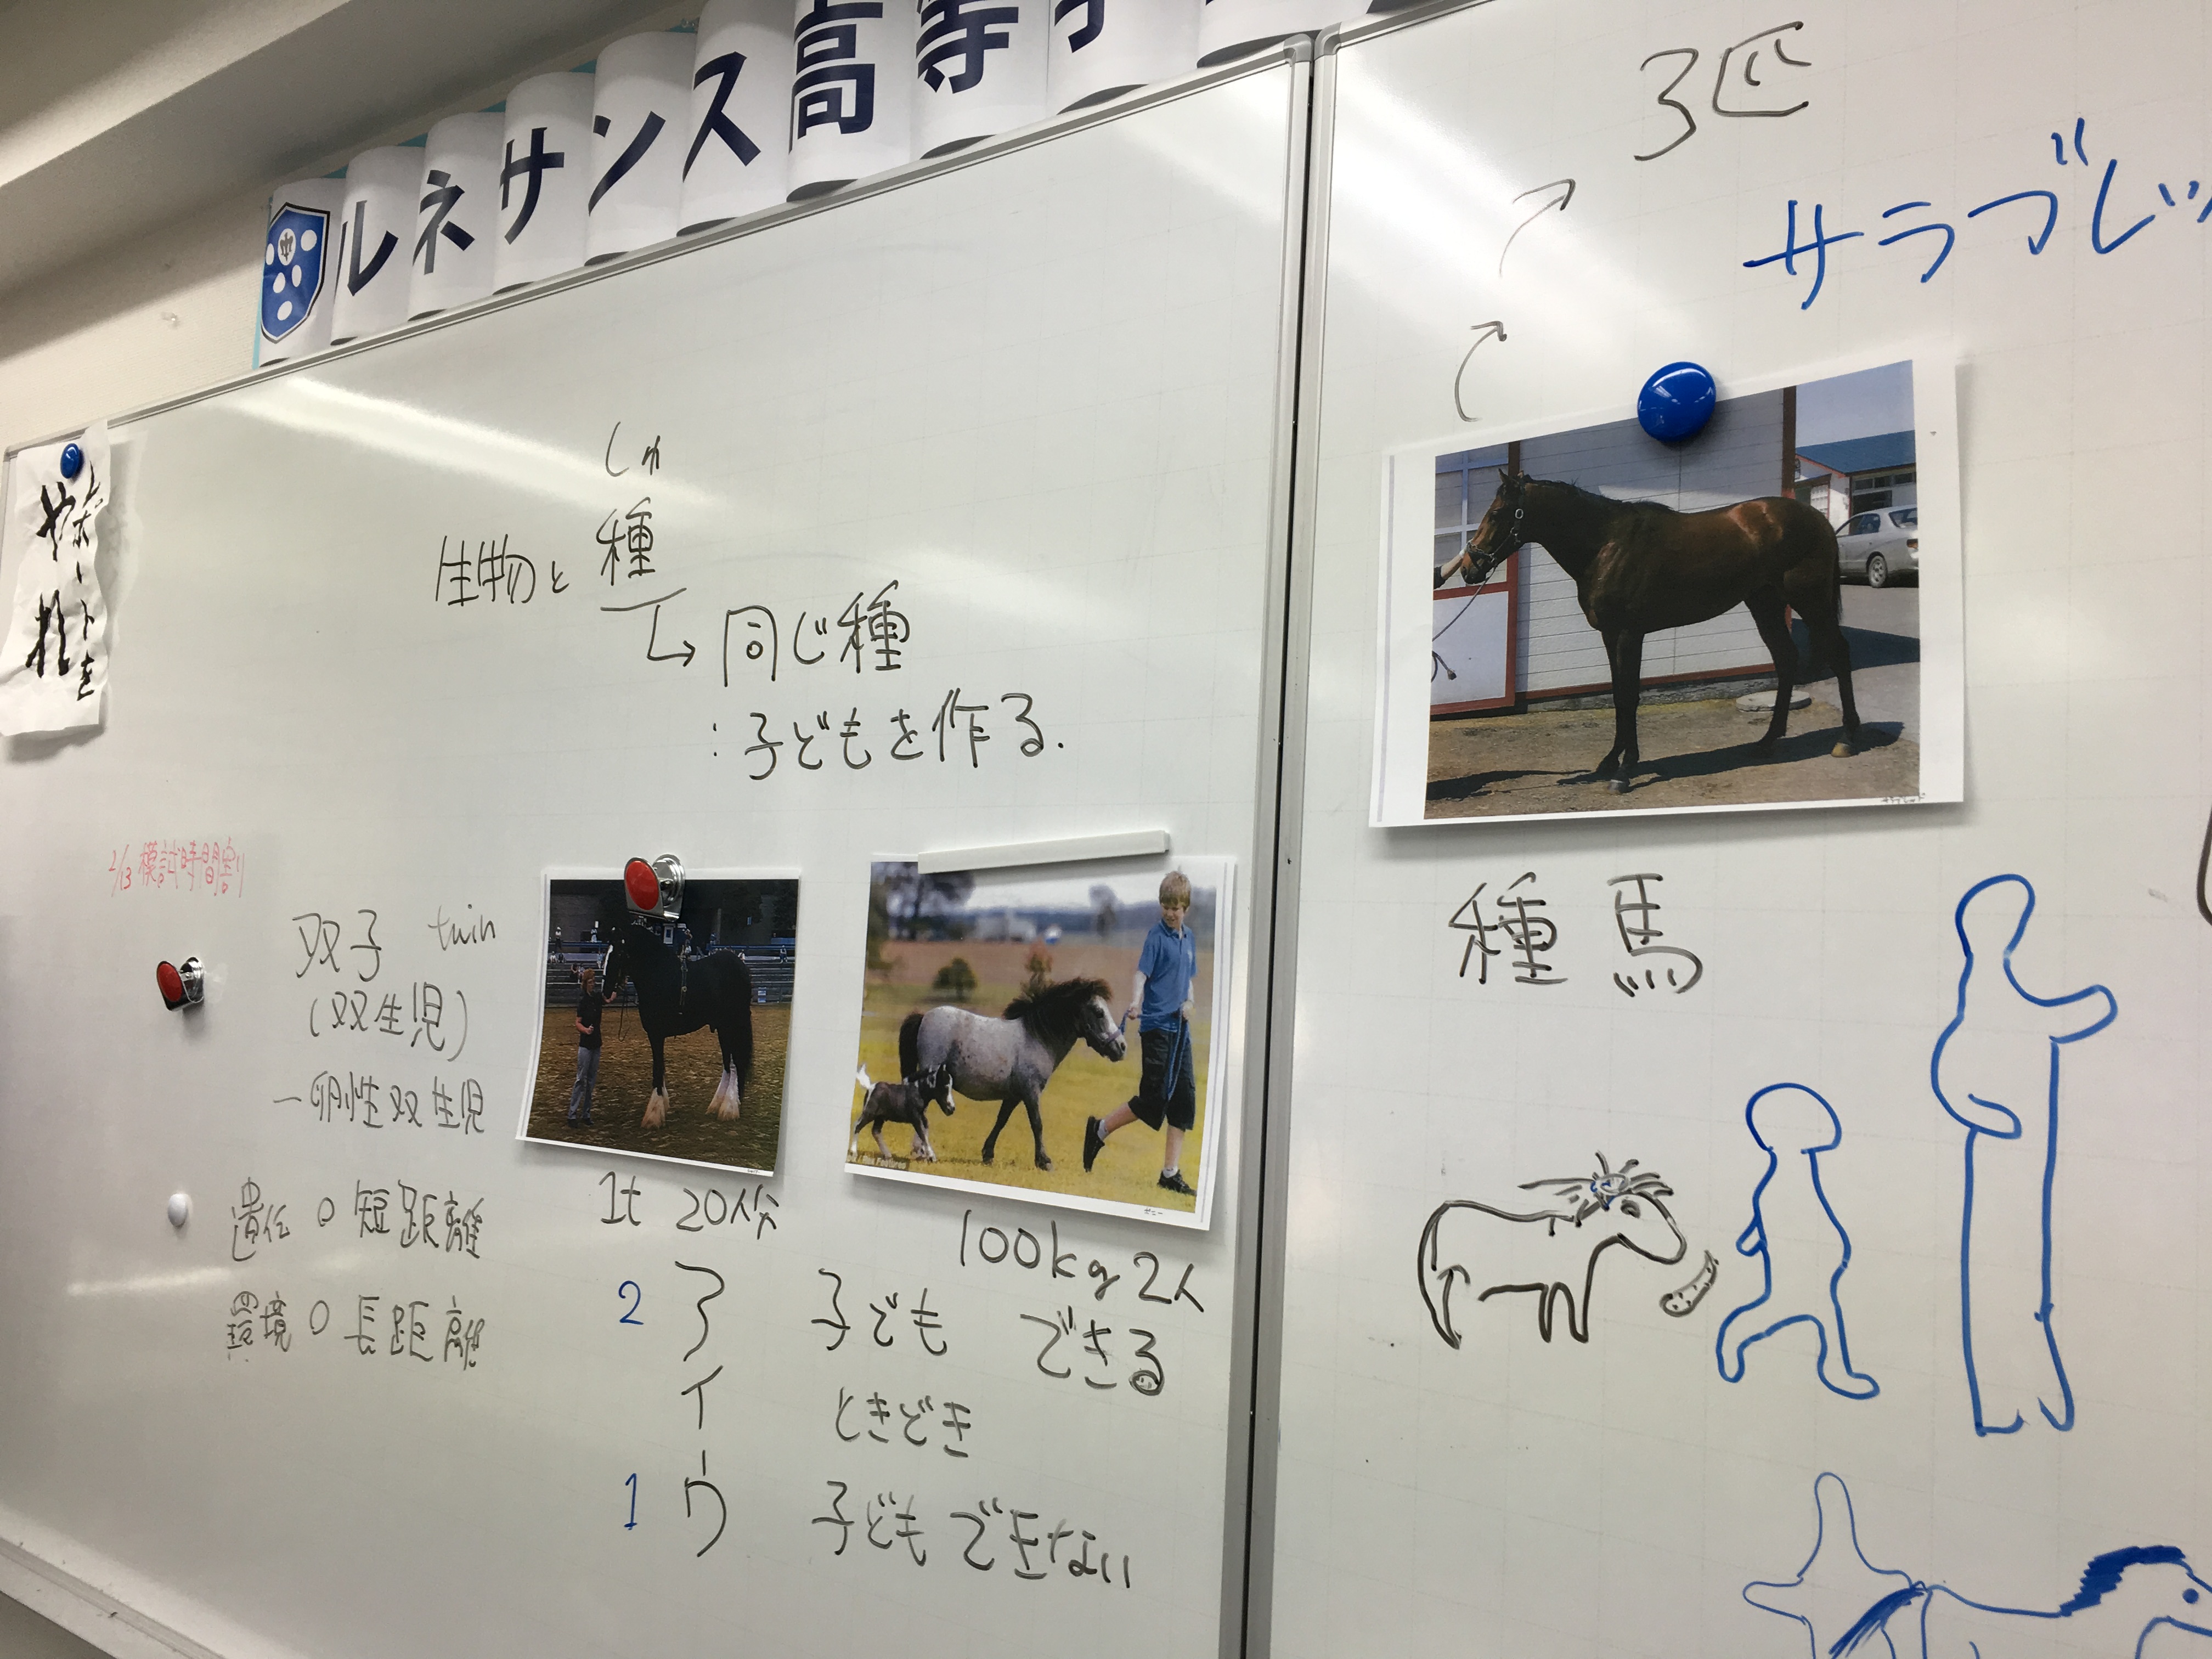 ルネサンス高等学
レポートを
やれ
しゅ
生物と種
同じ種
:子どもを作る.
2/13 模試時間割
双子 twin
(双生児)
一卵性双生児
遺伝 〇 短距離
環境 〇 長距離
1t 20人分
100kg 2人
2 ア 子ども できる
イ ときどき
1 ウ 子どもできない
3匹
サラブレッ
種馬